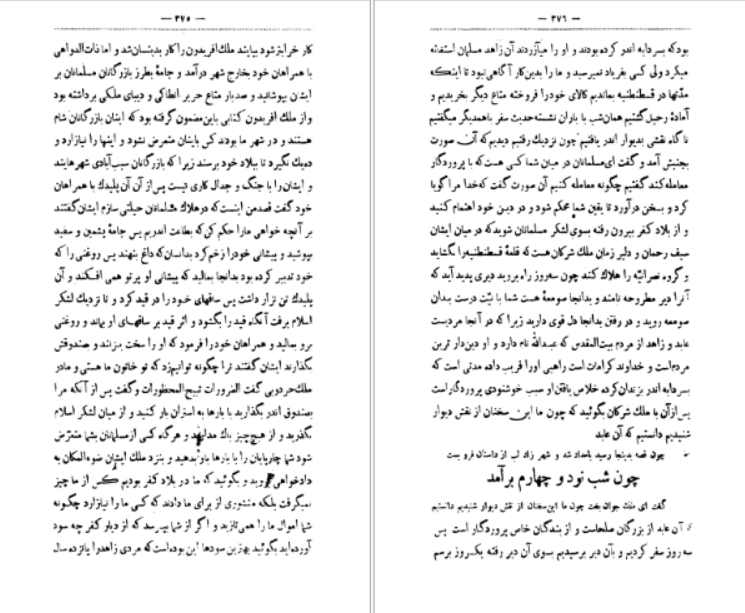 — ۳۷۵ —
کار خرابتر شود بیایند ملك افریدون را کار بدینسان شد و اما ذات الدواهی
با همراهان خود بخارج شهر درآمد و جامهٔ بطرز بازرگانان مسلمانان بر
ایشان بپوشانید و صد بار متاع حریر انطاکی و دیبای ملکی برداشته بود
و از ملك افریدون کتابی باین مضمون گرفته بود که اینان بازرگانان شام
هستند و در شهر ما بودند کس باینان متعرض نشود و اینها را نیازارد و
ده یك نگیرد تا ببلاد خود برسند زیرا که بازرگانان سبب آبادی شهرهایند
و ایشان را با جنگ و جدال کاری نیست پس از آن آن پلیدك با همراهان
خود گفت قصد من اینست که در هلاك مسلمانان حیلتی سازم ایشان گفتند
بر آنچه خواهی مارا حکم کن که بطاعت اندریم پس جامهٔ پشمین و سفید
بپوشید و پیشانی خود را زخم کرد بدانسان که داغ بنهند پس روغنی را که
خود تدبیر کرده بود بدانجا بمالید که پیشانی او پرتو همی افکند و آن
پلیدك تن نزار داشت پس ساقهای خود را در قید کرد و تا نزدیك لشکر
اسلام برفت آنگاه قید را بگشود و اثر قید بر ساقهای او بماند و روغنی
برو بمالید و همراهان خود را فرمود که او را سخت بزنند و صندوقش
بگذارند ایشان گفتند ترا چگونه توانیم زد که تو خاتون ما هستی و مادر
ملك حردوبی گفت الضرورات تبیح المحظورات و گفت پس از آنکه مرا
بصندوق اندر بگذارید با بارها به استران بار کنید و از میان لشکر اسلام
بگذرید و از هیچ چیز باك مدارید و هرگاه کسی از مسلمانان بشما متعرض
شود شما چارپایان را با بارها باو بدهید و بنزد ملك ایشان ضوء المکان به
دادخواهی روید و بگوئید که ما در بلاد کفر بودیم کس از ما چیز
نمیگرفت بلکه منشوری از برای ما دادند که کسی ما را نیازارد چگونه
شما اموال ما را همی تازید و اگر از شما بپرسد که از دیار کفر چه سود
آورده اید بگوئید بهترین سودها این بوده است که مردی زاهدرا پانزده سال
— ۳۷٦ —
بود که بسردابه اندر کرده بودند و او را میآزردند آن زاهد مسلمان استغاثه
میکرد ولی کسی بفریاد نمیرسید و ما را بدین کار آگاهی نبود تا اینکه
مدتها در قسطنطنیه بماندیم کالای خود را فروخته متاع دیگر بخریدیم و
آمادهٔ رحیل گشتیم همان شب با یاران نشسته حدیث سفر باهمدیگر میگفتیم
ناگاه نقشی بدیوار اندر یافتیم چون نزدیك رفتیم دیدیم که آن صورت
بجنبش آمد و گفت ای مسلمانان در میان شما کسی هست که با پروردگار
معامله کند گفتیم چگونه معامله کنیم آن صورت گفت که خدا مرا گویا
کرد و بسخن درآورد تا یقین شما محکم شود و در دین خود اهتمام کنید
و از بلاد کفر بیرون رفته بسوی لشکر مسلمانان شوید که در میان ایشان
سیف رحمان و دلیر زمان ملك شرکان هست که قلعهٔ قسطنطنیه را بگشاید
و گروه نصرانیه را هلاك کند چون سه روز راه بروید دیری پدید آید که
آنرا دیر مطروحه نامند و بدانجا صومعهٔ هست شما با نیت درست بدان
صومعه روید و در رفتن بدانجا دل قوی دارید زیرا که در آنجا مردیست
عابد و زاهد از مردم بیت المقدس که عبدالله نام دارد و او دین دار ترین
مردم است و خداوند کرامات است راهبی اورا فریب داده مدتی است که
بسردابه اندر بزندان کرده خلاص یافتن او سبب خوشنودی پروردگار است
پس از آن با ملك شرکان بگوئید که چون ما این سخنان از نقش دیوار
شنیدیم دانستیم که آن عابد
چون قصه بدینجا رسید بامداد شد و شهر زاد لب از داستان فرو بست
چون شب نود و چهارم برآمد
گفت ای ملك جوان بخت چون ما این سخنان از نقش دیوار شنیدیم دانستیم
که آن عابد از بزرگان صلحاست و از بندگان خاص پروردگار است پس
سه روز سفر کردیم و بآن دیر برسیدیم بسوی آن دیر رفته یك روز برسم